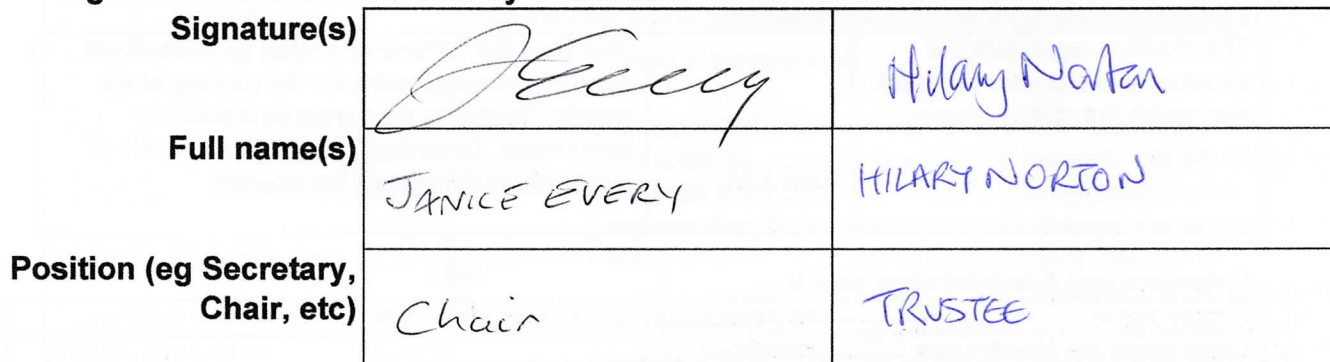 Signature(s)
JEvery
Hilary Norton
Full name(s)
JANICE EVERY
HILARY NORTON
Position (eg Secretary,
Chair, etc)
Chair
TRUSTEE